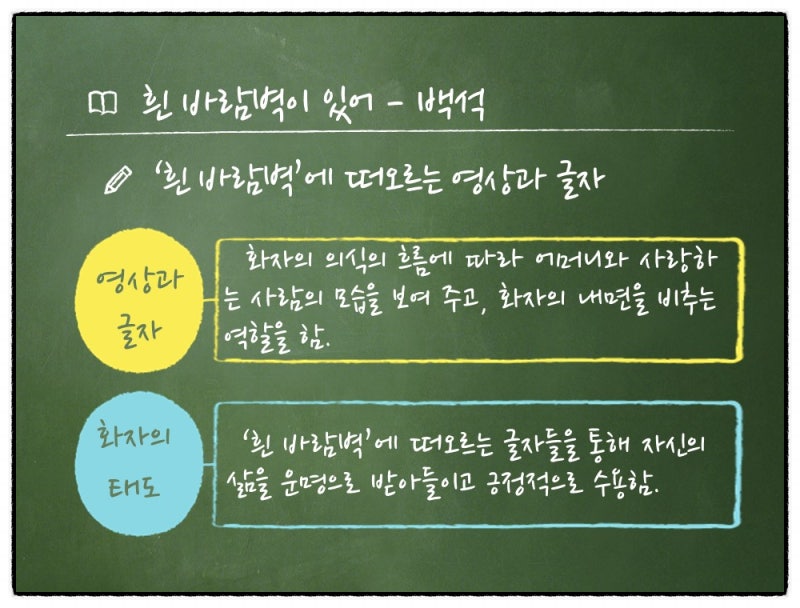 흰 바람벽이 있어 - 백석
‘흰 바람벽’에 떠오르는 영상과 글자
영상과
글자
화자의 의식의 흐름에 따라 어머니와 사랑하
는 사람의 모습을 보여 주고, 화자의 내면을 비추는
역할을 함.
화자의
태도
‘흰 바람벽’에 떠오르는 글자들을 통해 자신의
삶을 운명으로 받아들이고 긍정적으로 수용함.